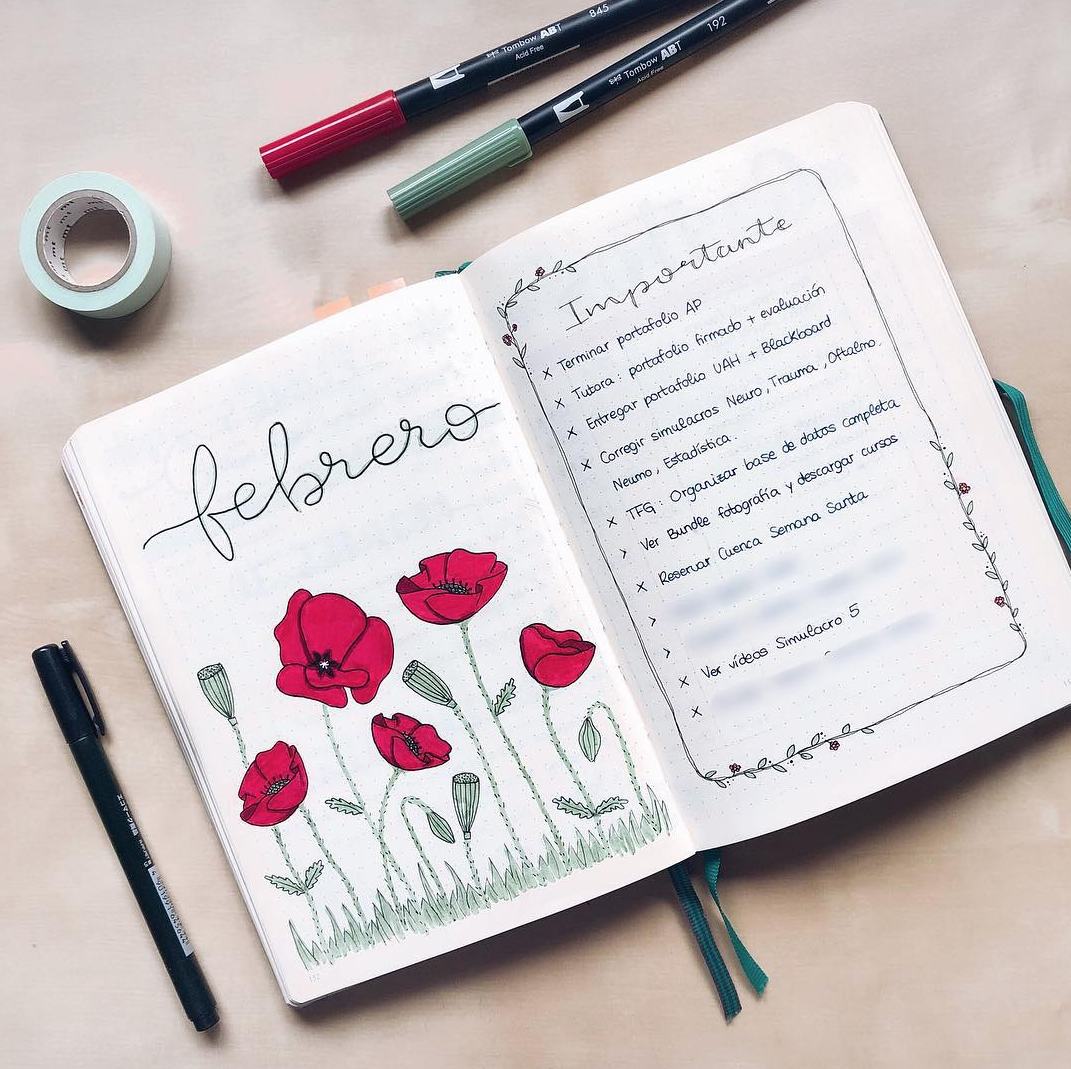 845
Tombow ABT
Acid Free
192
Tombow ABT
Acid Free
mt mt mt
febrero
Importante
x Terminar portafolio AP
x Tutora: portafolio firmado + evaluación
x Entregar portafolio UAH + Blackboard
x Corregir simulacros Neuro, Trauma, Oftalmo,
Neumo, Estadística.
x TFG: Organizar base de datos completa
> Ver Bundle fotografía y descargar cursos
x Reservar Cuenca Semana Santa
>
>
x Ver vídeos Simulacro 5
x
152